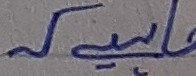 چاہیے کہ